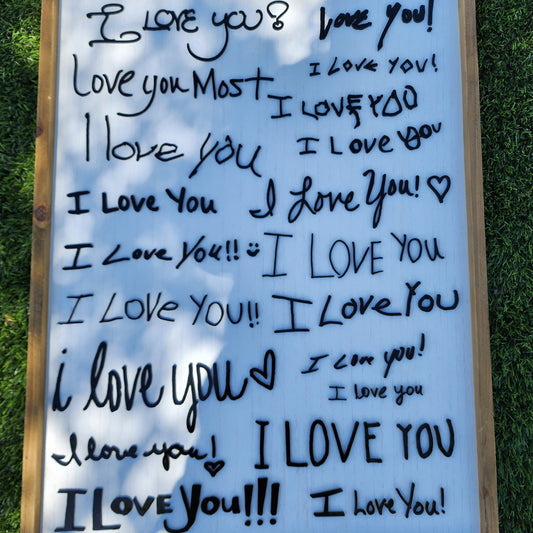 I Love you?
Love You!
I Love You!
Love you Most
I LOVE YOU
I Love you
I Love You
I Love You
I Love You! ♡
I Love You!! ☺
I LOVE YOU
I LOVE YOU!!
I Love You
i love you ♡
I Love you!
I love you
I love you! ♡
I LOVE YOU
I Love You!!!
I Love You!